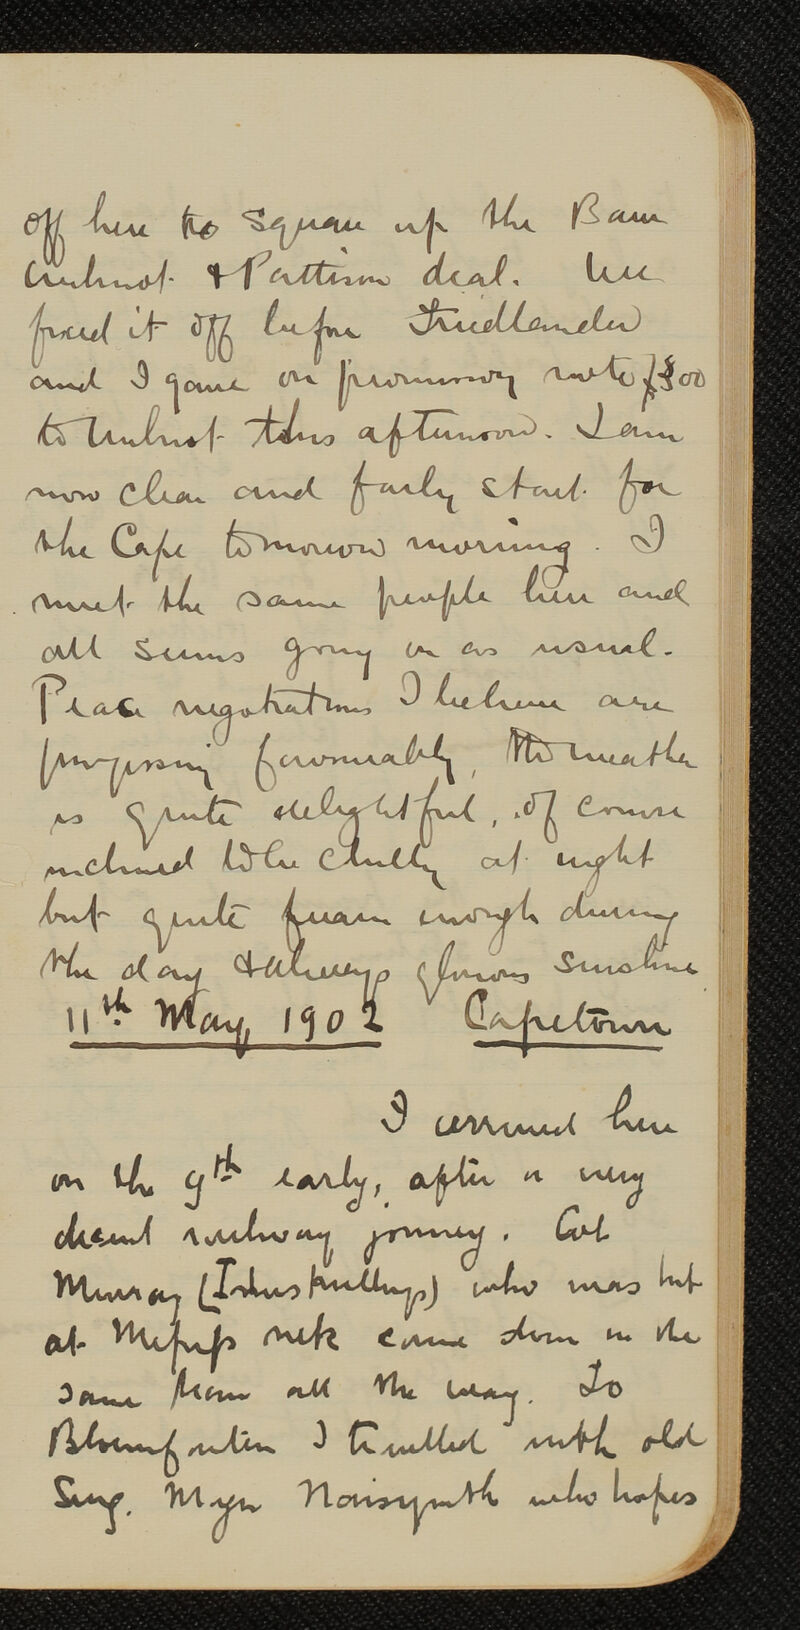 off here to square up the Bain
& Pattison deal. We
fixed it off before Friedlander
and I gave on promissory note £300
to this afternoon. I am
now clear and fairly start for
the Cape tomorrow morning. I
meet the same people here and
all seems going on as usual.
Peace negotiations I believe are
progressing favourably, the weather
is quite delightful, of course
inclined to be chilly at night
but quite warm enough during
the day & always glorious sunshine
11th May, 1902 Capetown
I arrived here
on the 9th early, after a very
decent railway journey. Col
Murray (Inniskillings) who was hit
at nek came down in the
same train all the way. To
Bloemfontein I travelled with old
Surg. Major Naisymth who hopes